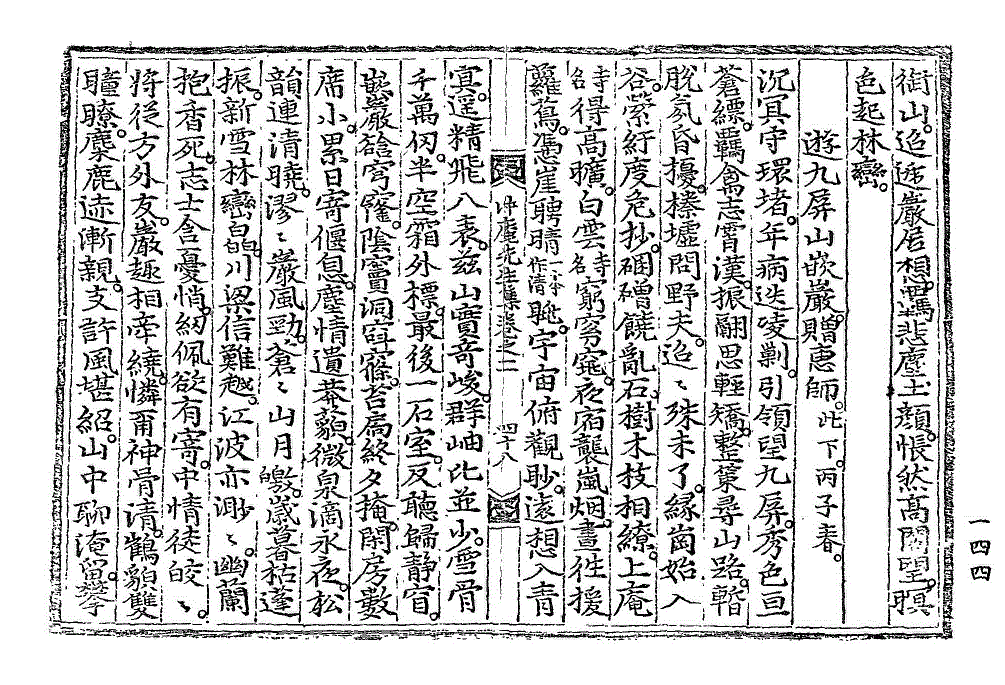 街山迢遞巖居想羈悲塵土顔悵然髙閣望暝
色起林巒
遊九屏山嵌巖贈惠師此下丙子春
沉冥守環堵年病迭凌剝引領望九屏秀色亘
蒼縹羈禽志霄漢振翮思輕矯整策尋山路暫
脫氛昏擾榛墟問野夫迢〻殊未了緣崗始入
谷縈紆度危抄磵磴饒亂石樹木枝相繚上庵
寺名得高曠白雲寺名窮穹窕夜宿襲嵐烟晝往援
蘿蔦憑崖聘晴一本作清眺宇宙俯觀眇遠想入青
冲庵先生集卷之二 四十八
冥逞精飛八表玆山實奇峻群岫比並少雪骨
千萬仞半空霜外標最後一石室反聽歸静窅
嵌巖谽穹窿陰竇洞窅窱苔扃終夕掩閑房數
席小累日寄偃息塵情遺莽藐微泉滴永夜松
韻連清曉漻〻巖風勁蒼〻山月皦歲暮枯蓬
振新雪林巒皛川梁信難越江波亦渺〻幽蘭
抱香死志士含憂悄紉佩欲有寄中情徒皎〻
將從方外友巖趣相牽繞憐爾神骨清鶴貌雙
瞳瞭麋鹿迹漸親支許風堪紹山中聊淹留攀
一四四